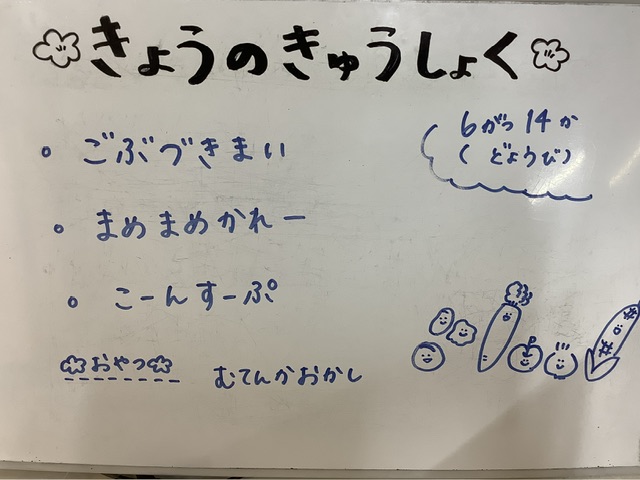 きょうのきゅうしょく
6がつ14か
(どようび)
ごぶづきまい
まめまめかれー
こーんすーぷ
おやつ むてんかおかし